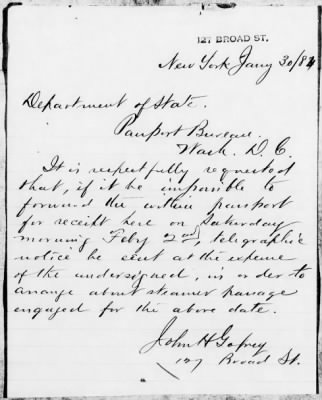 127 BROAD ST.
New York Jany 30/84
Department of State.
Passport Bureau.
Wash. D. C.
It is respectfully requested
that, if it be impossible to
forward the within passport
for receipt here on Saturday
morning Feby 2nd, telegraphic
notice be sent at the expense
of the undersigned, in order to
arrange about steamer passage
engaged for the above date.
John H
127 Broad St.